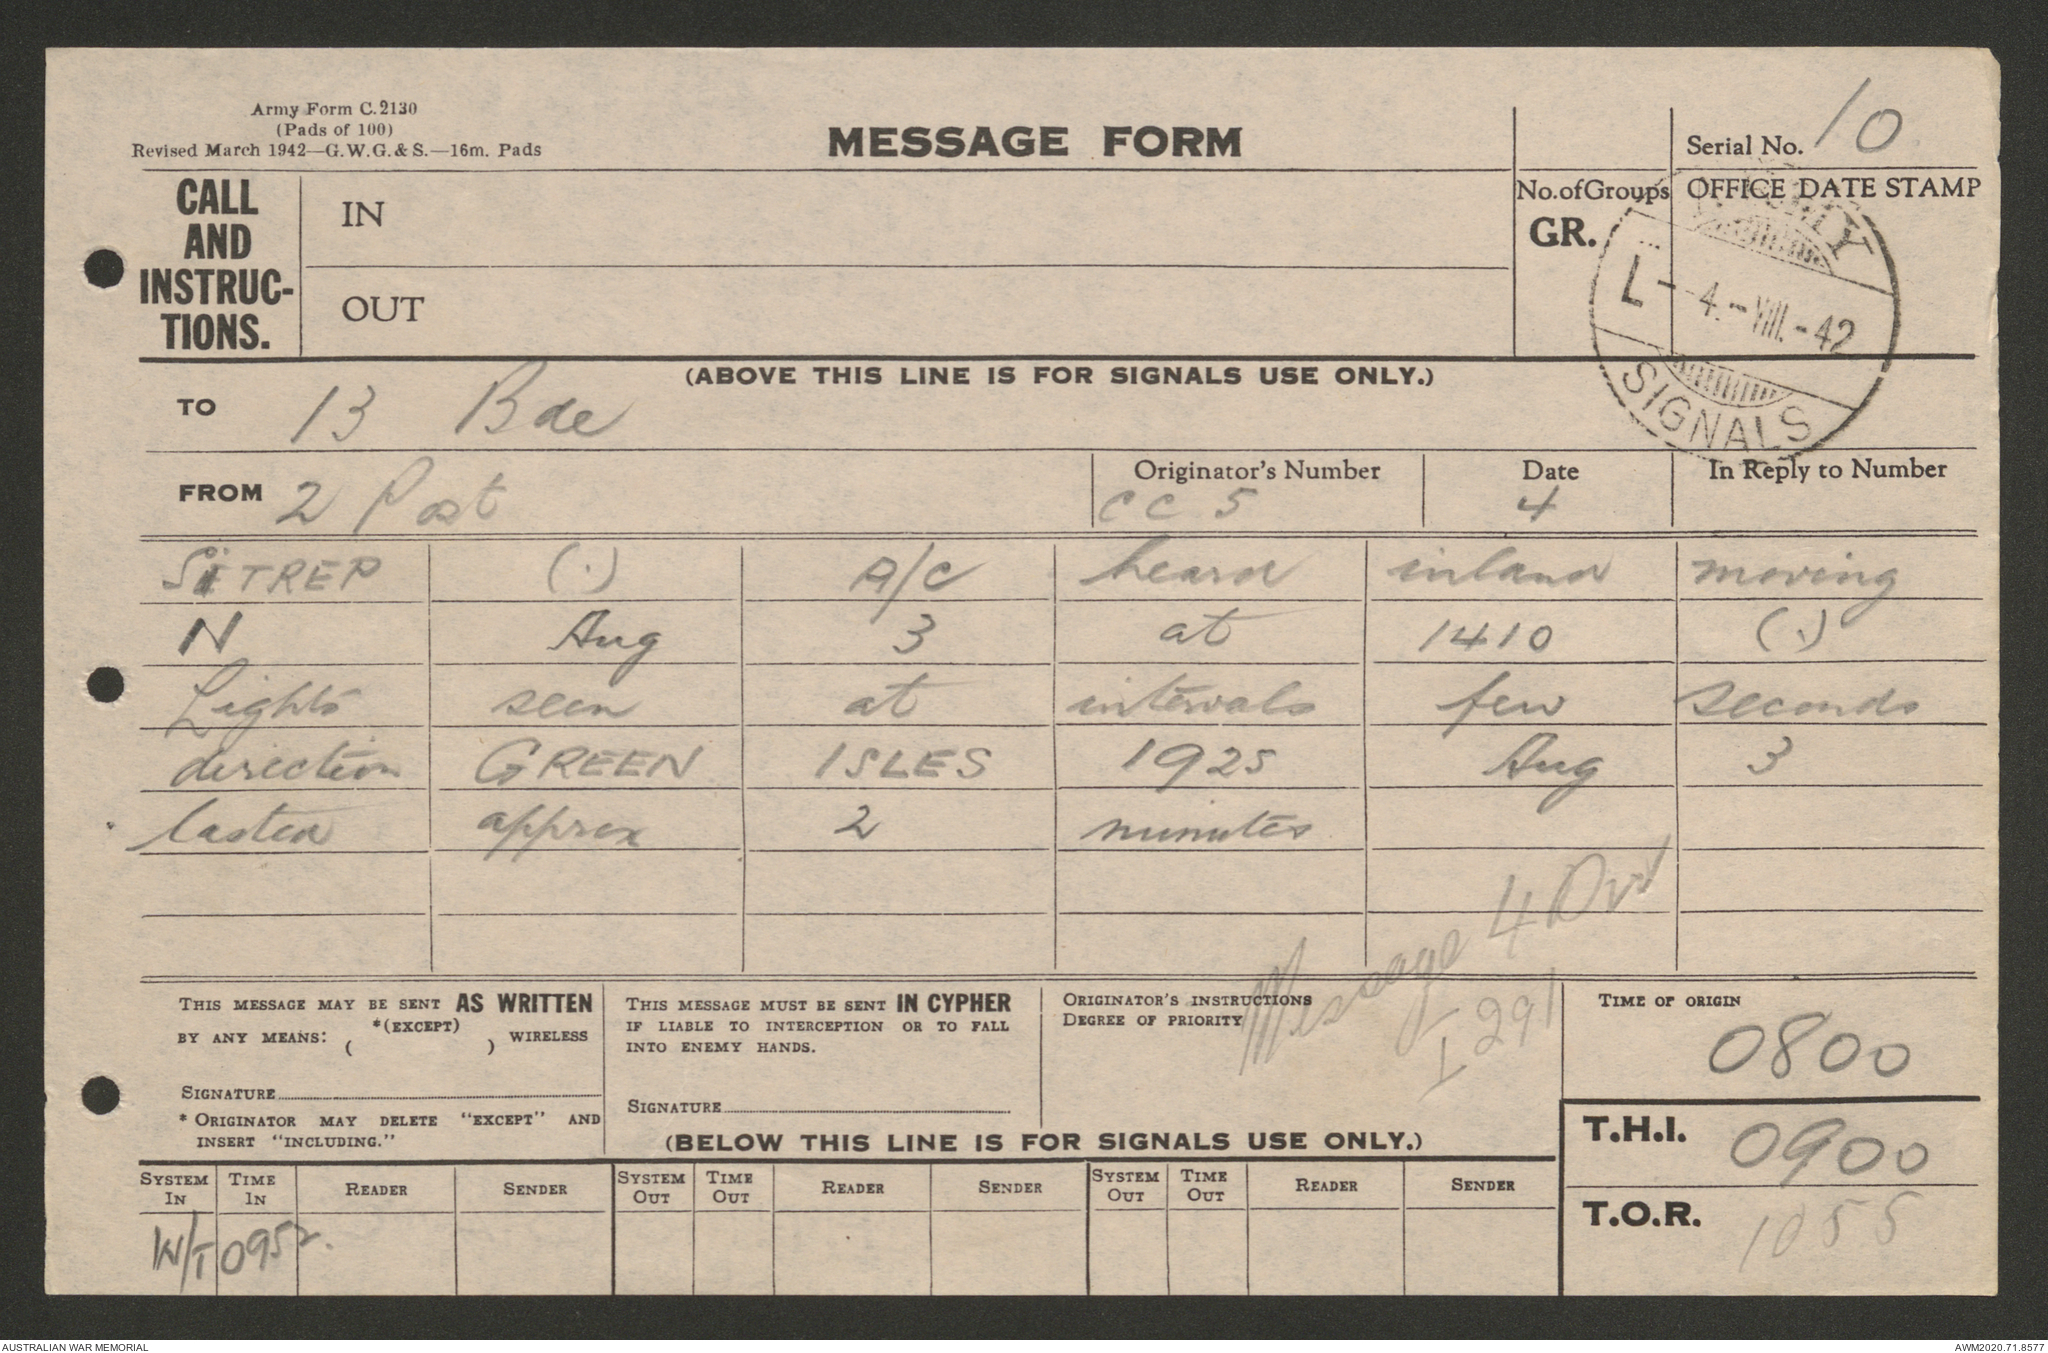 Army Form C. 2130
(Pads of 100)
Revised March 1942—G.W.G. & S.—16m. Pads
MESSAGE FORM
Serial No. 10
CALL AND INSTRUC-TIONS.
IN
OUT
No. of Groups
GR.
OFFICE DATE STAMP
L - 4. - VIII. - 42
SIGNALS
(ABOVE THIS LINE IS FOR SIGNALS USE ONLY.)
TO 13 Bde
FROM 2 Post
Originator's Number CC 5
Date 4
In Reply to Number
SITREP (.) A/C heard inland moving
N Aug 3 at 1410 (.)
Lights seen at intervals few seconds
direction GREEN ISLES 1925 Aug 3
lasted approx 2 minutes
Message 4 Div
I 291
THIS MESSAGE MAY BE SENT AS WRITTEN
BY ANY MEANS: *(EXCEPT) ( ) WIRELESS
SIGNATURE
* ORIGINATOR MAY DELETE "EXCEPT" AND
INSERT "INCLUDING."
THIS MESSAGE MUST BE SENT IN CYPHER
IF LIABLE TO INTERCEPTION OR TO FALL
INTO ENEMY HANDS.
SIGNATURE
ORIGINATOR'S INSTRUCTIONS
DEGREE OF PRIORITY
TIME OF ORIGIN
0800
(BELOW THIS LINE IS FOR SIGNALS USE ONLY.)
T.H.I. 0900
T.O.R. 1055
SYSTEM IN TIME IN READER SENDER SYSTEM OUT TIME OUT READER SENDER SYSTEM OUT TIME OUT READER SENDER
W/T 0952.
AUSTRALIAN WAR MEMORIAL
AWM2020.71.8577